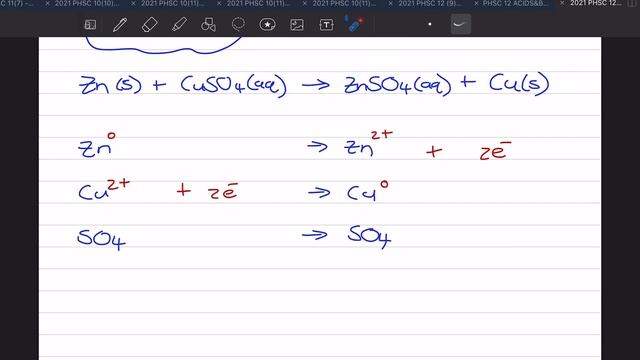 C 11(7) - ... 2021 PHSC 10(10)... 2021 PHSC 10(11)... 2021 PHSC 10(11)... 2021 PHSC 10(11)... 2021 PHSC 12 (9)... PHSC 12 ACIDS&B... 2021 PHSC 12...
Zn(s) + CuSO4(aq) → ZnSO4(aq) + Cu(s)
Zn⁰ → Zn²⁺ + 2e⁻
Cu²⁺ + 2e⁻ → Cu⁰
SO4 → SO4